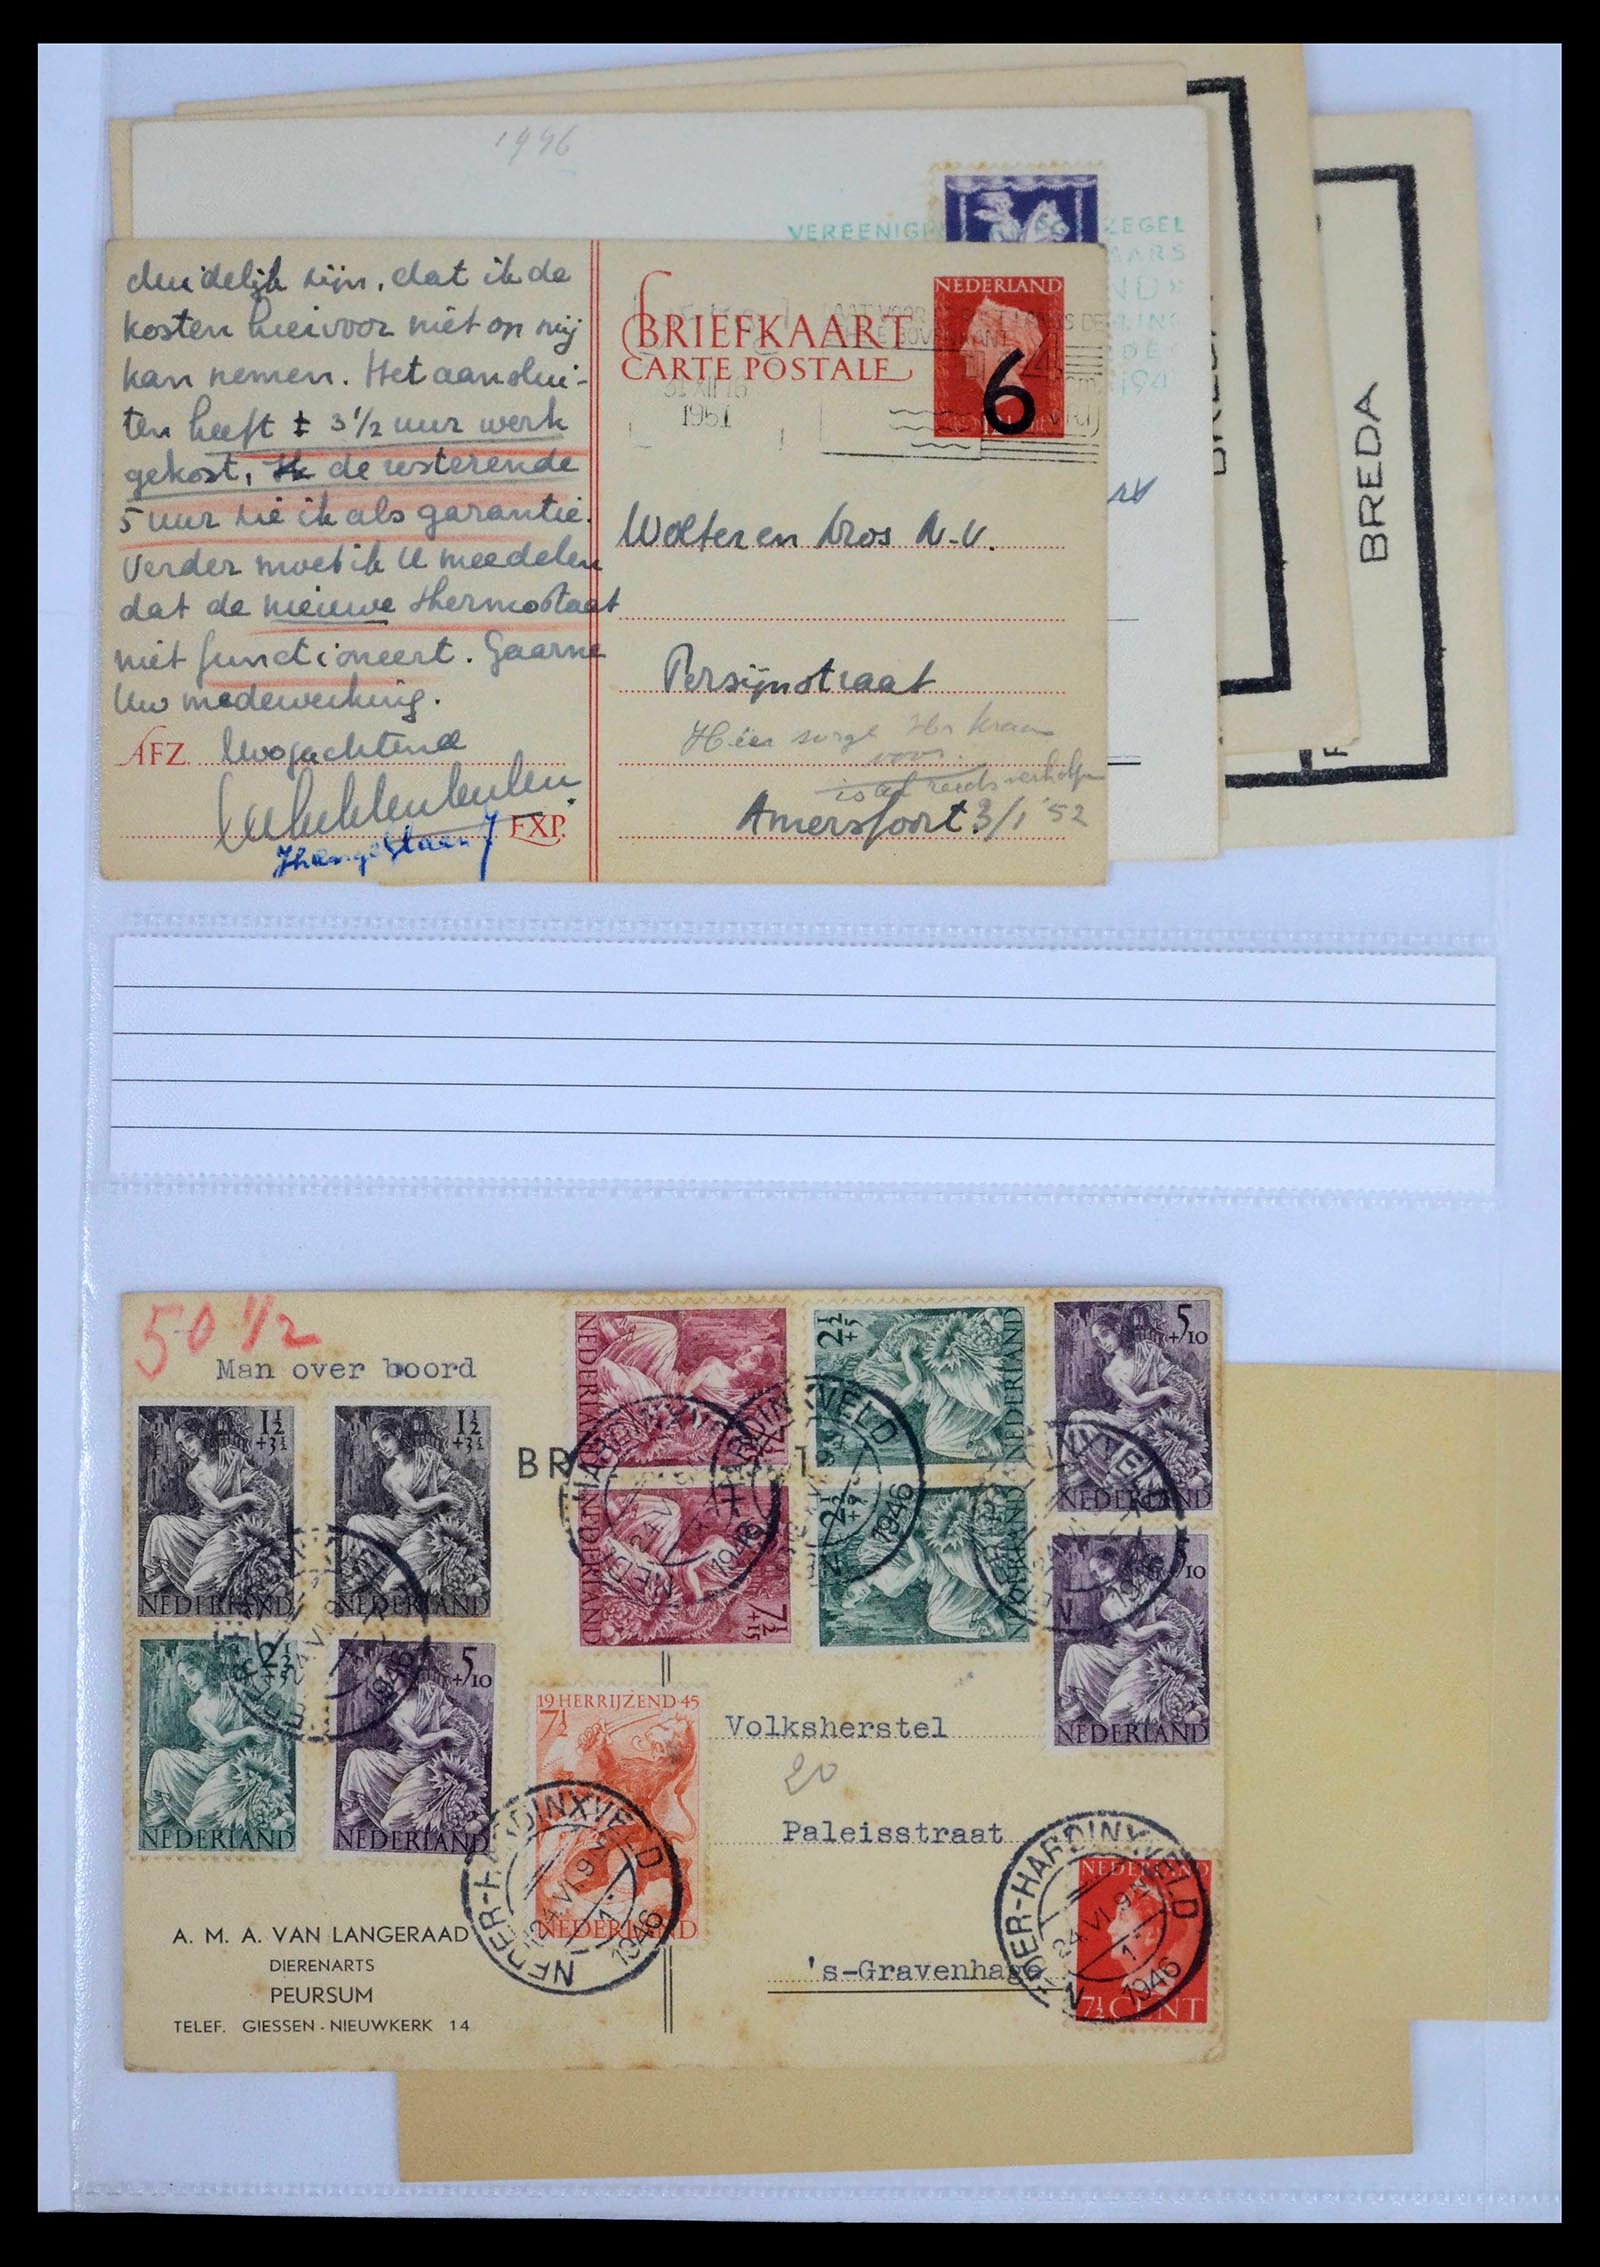 1946
VEREENIG
ZEGEL
AARS
ND»
BREDA
duidelijk zijn, dat ik de
kosten hiervoor niet op mij
kan nemen. Het aanslui-
ten heeft ± 3 1/2 uur werk
gekost, de resterende
5 uur zie ik als garantie.
Verder moet ik U meedelen
dat de nieuwe thermostaat
niet functioneert. Gaarne
Uw medewerking.
AFZ. Hoogachtend
EXP.
BRIEFKAART
CARTE POSTALE
NEDERLAND
6
31 XII 16
1951
Wolter en Dros N.V.
Persijnstraat
Hier zorgt Hr Kraan
voor.
is al reeds verholpen
Amersfoort 3/1 '52
50 1/2
Man over boord
1½
+3½
NEDERLAND
1½
+3½
NEDERLAND
2½
+5
NEDERLAND
5
+/10
NEDERLAND
NEDERLAND
NEDERLAND
7½
+15
2½
+5
NEDERLAND
2½
+5
NEDERLAND
5
+/10
NEDERLAND
5
/10
NEDERLAND
BR
T
NEDER-HARDINXVELD
24.VI.9
1946
19 HERRIJZEND 45
7½
NEDERLAND
NEDER-HARDINXVELD
24.VI.9
1946
Volksherstel
20
Paleisstraat
's-Gravenhage
NEDERLAND
7½ CENT
NEDER-HARDINXVELD
24.VI.9
1946
A. M. A. VAN LANGERAAD
DIERENARTS
PEURSUM
TELEF. GIESSEN-NIEUWKERK 14